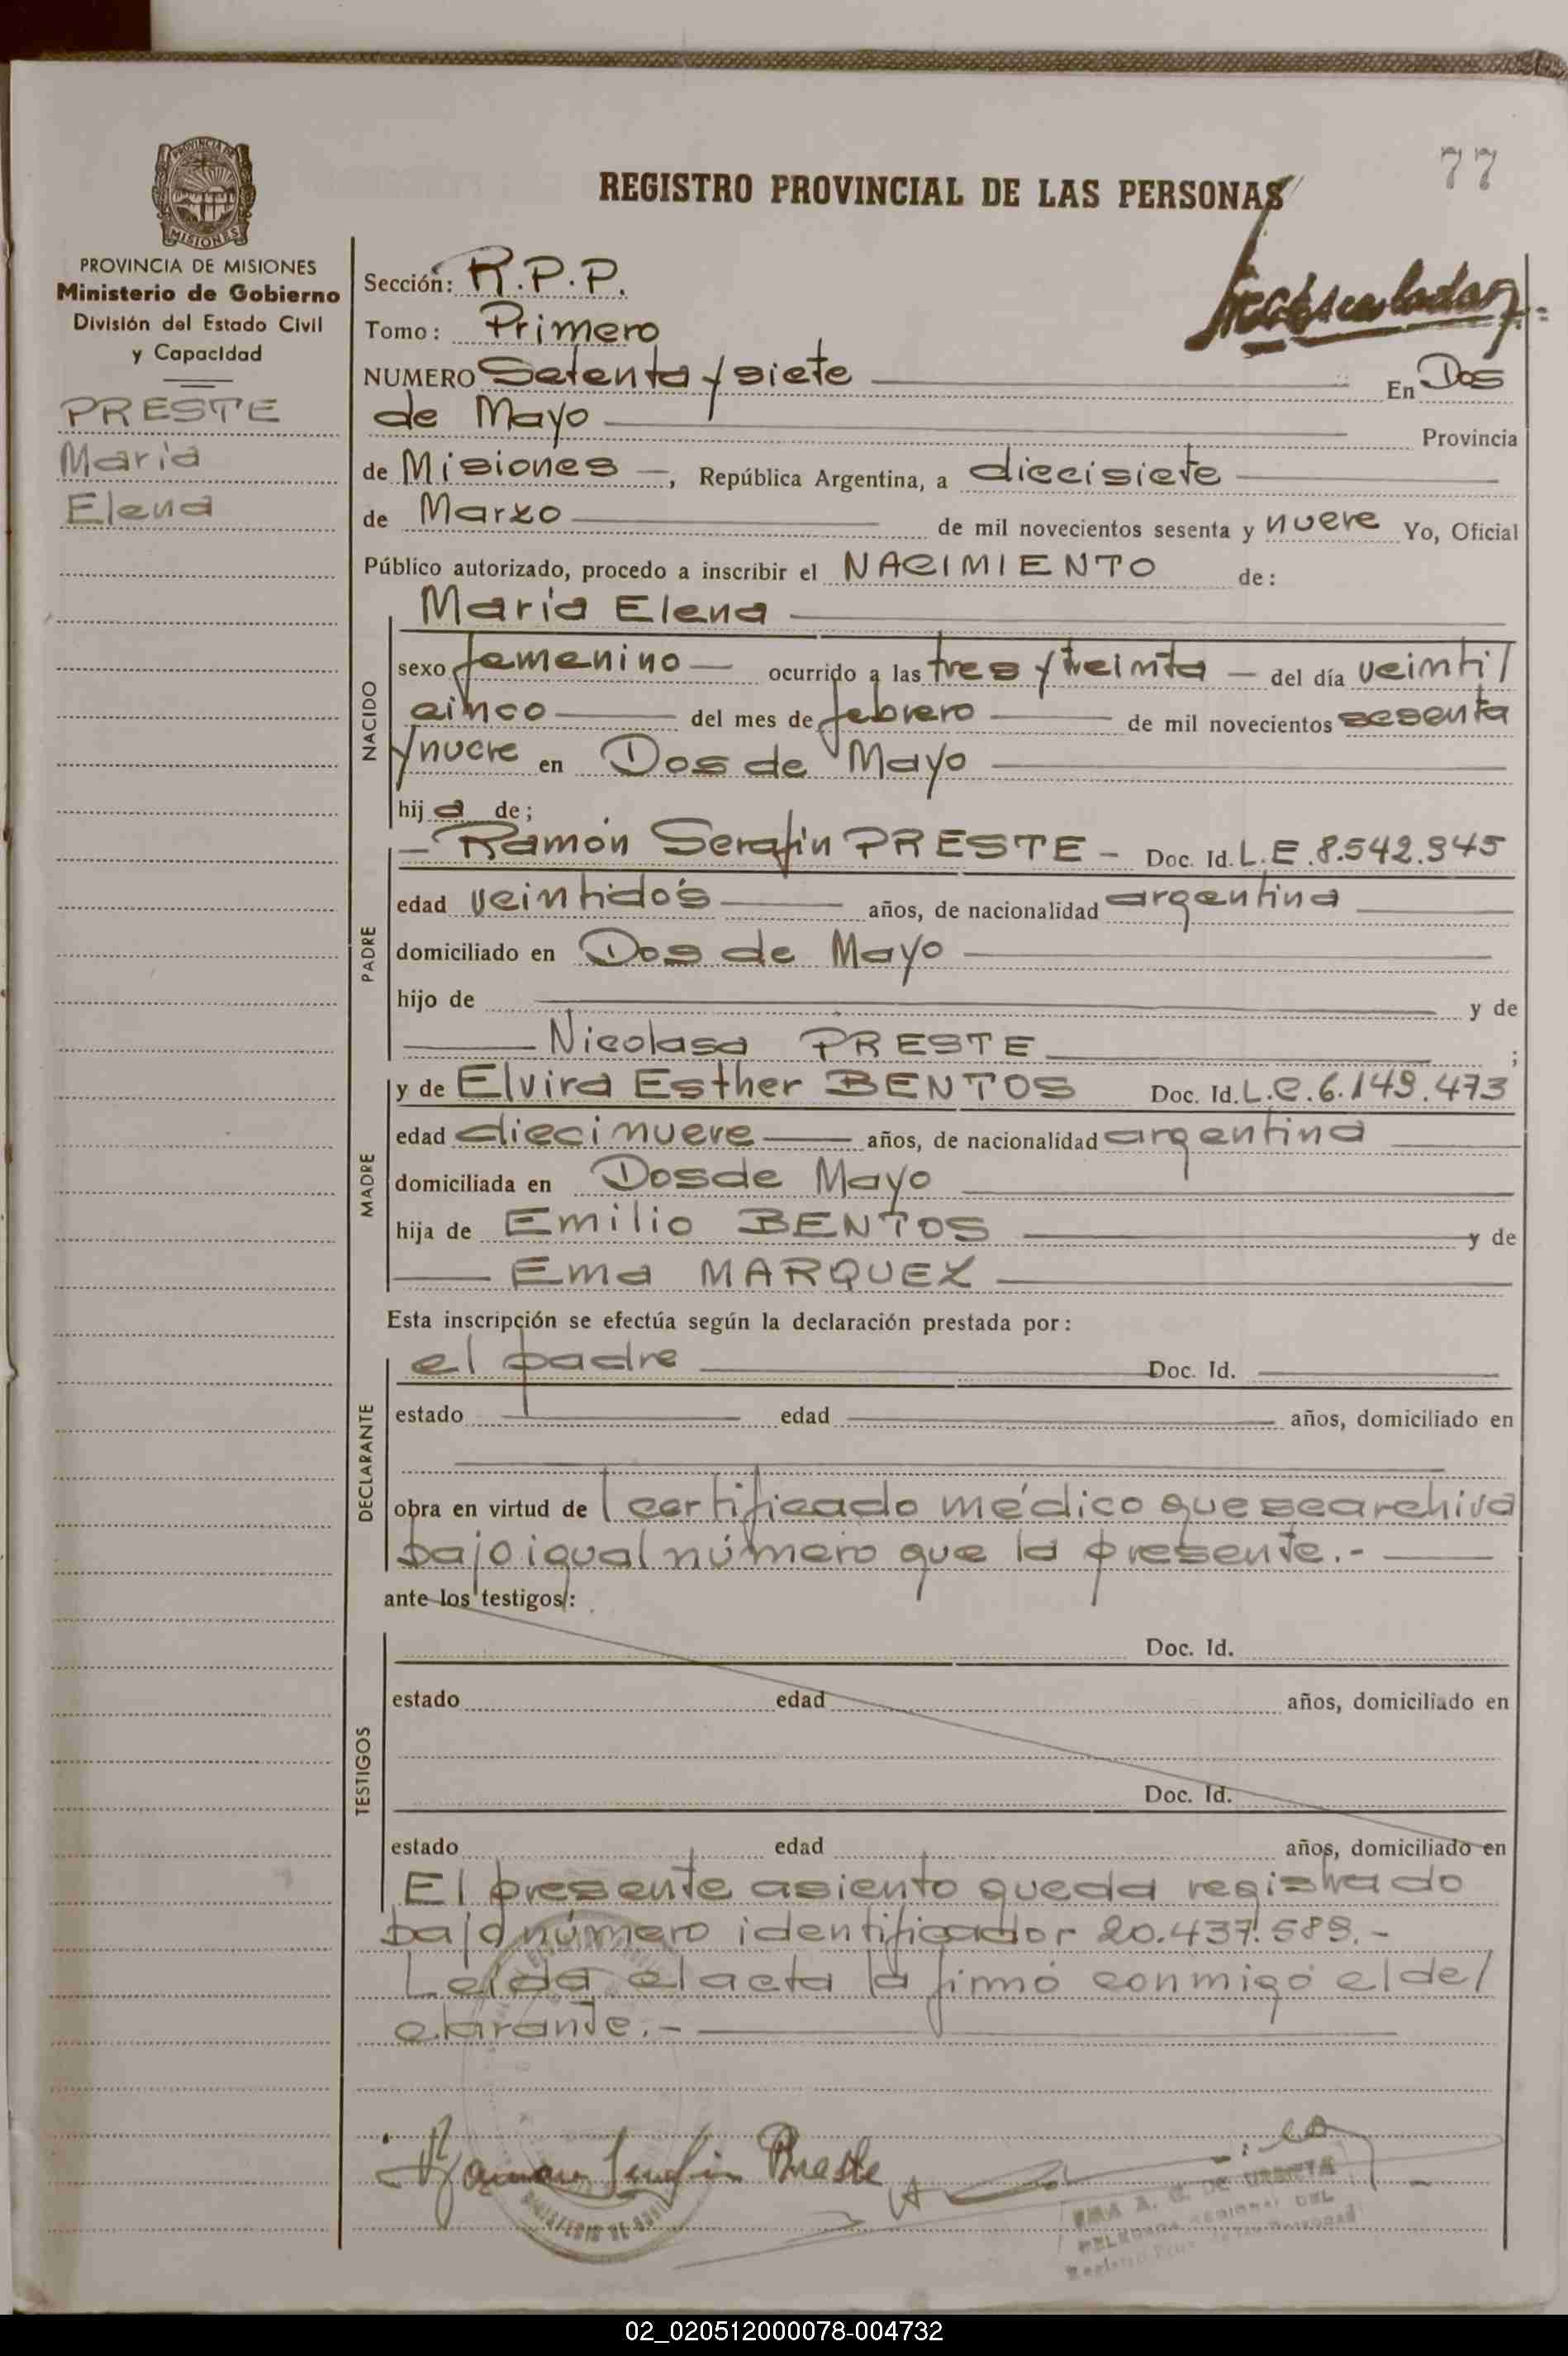 77
REGISTRO PROVINCIAL DE LAS PERSONAS
PROVINCIA DE MISIONES
MISIONES
PROVINCIA DE MISIONES
Ministerio de Gobierno
División del Estado Civil
y Capacidad
PRESTE
María
Elena
Sección: R.P.P.
Tomo: Primero
NUMERO Setenta y siete En Dos
de Mayo Provincia
de Misiones —, República Argentina, a diecisiete
de Marzo de mil novecientos sesenta y nueve Yo, Oficial
Público autorizado, procedo a inscribir el NACIMIENTO de:
María Elena
NACIDO
sexo femenino — ocurrido a las tres y treinta — del día veinti/
cinco del mes de febrero de mil novecientos sesenta
y nueve en Dos de Mayo
hija de;
PADRE
— Ramón Serafin PRESTE — Doc. Id. L.E. 8.542.945
edad veintidós años, de nacionalidad argentina
domiciliado en Dos de Mayo
hijo de y de
Nicolasa PRESTE ;
MADRE
y de Elvira Esther BENTOS Doc. Id. L.C. 6.149.473
edad diecinueve años, de nacionalidad argentina
domiciliada en Dos de Mayo
hija de Emilio BENTOS y de
Ema MARQUEZ
Esta inscripción se efectúa según la declaración prestada por:
DECLARANTE
el padre Doc. Id.
estado edad años, domiciliado en
obra en virtud de l certificado médico que se archiva
bajo igual número que la presente.-
ante los testigos:
TESTIGOS
Doc. Id.
estado edad años, domiciliado en
Doc. Id.
estado edad años, domiciliado en
El presente asiento queda registrado
bajo número identificador 20.437.589.-
Leída el acta la firmó conmigo el de/
clarante.-
Ramon Serafin Preste
02_020512000078-004732